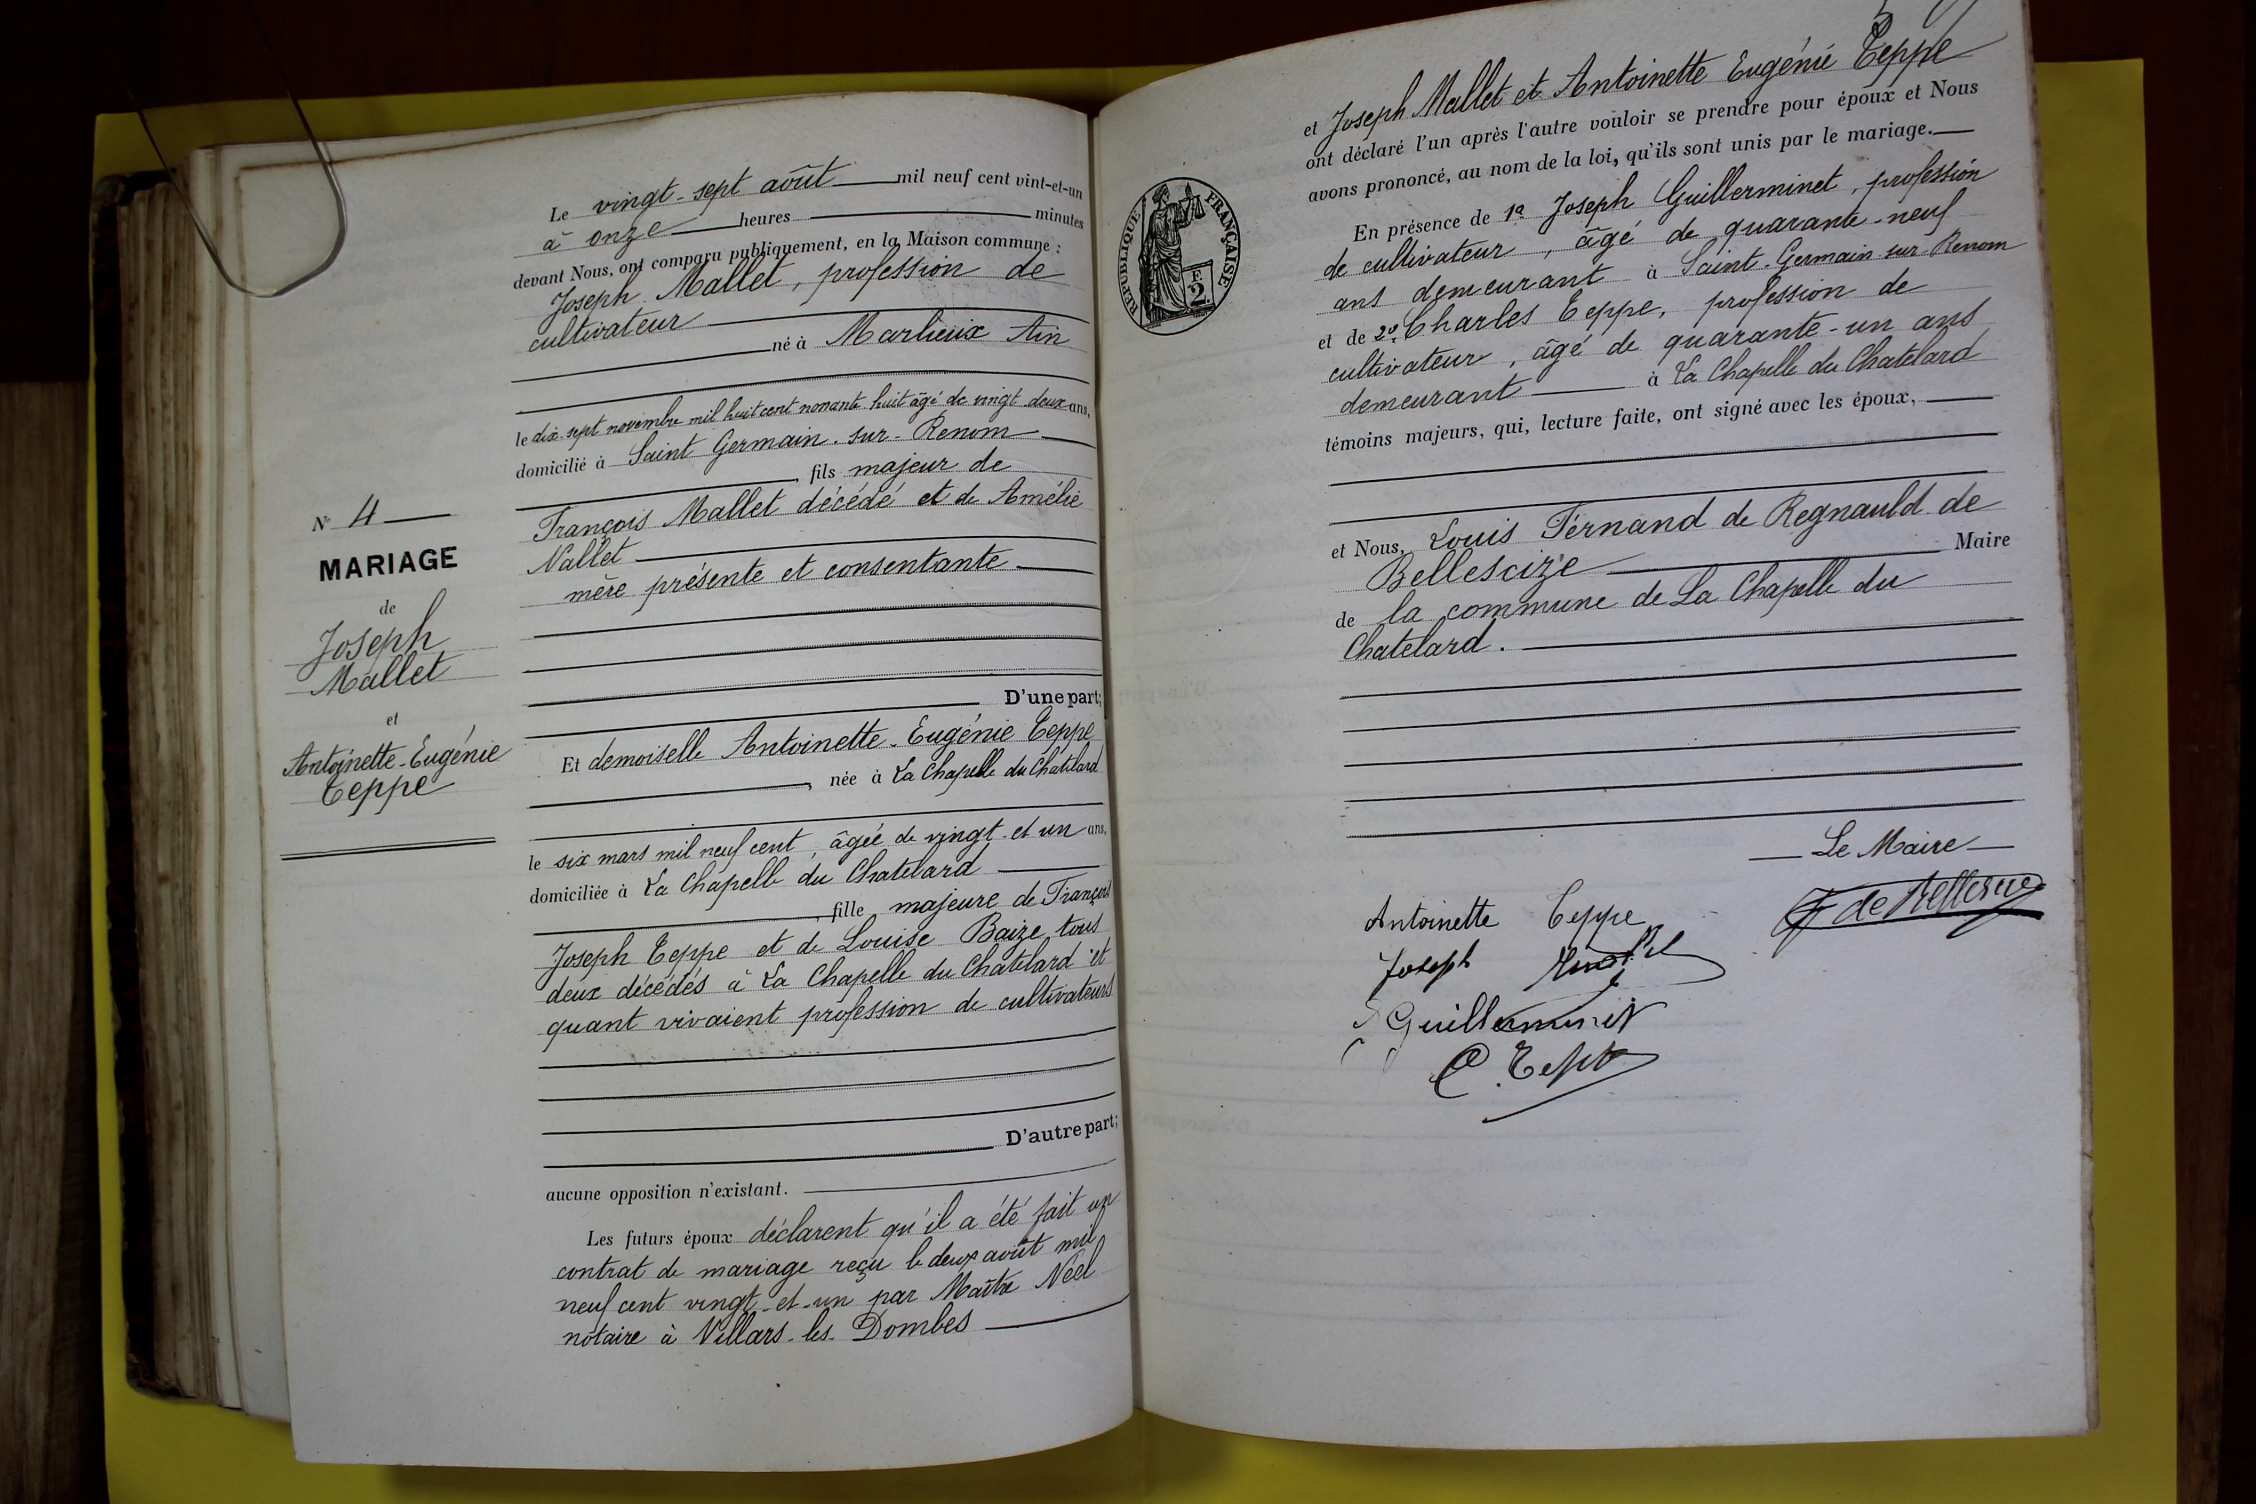 Le vingt-sept août mil neuf cent vint-et-un
à onze heures minutes
devant Nous, ont comparu publiquement, en la Maison commune :
Joseph Mallet, profession de
cultivateur
né à Marlieux Ain
le dix-sept novembre mil huit cent nonante huit âgé de vingt deux ans,
domicilié à Saint Germain-sur-Renom
, fils majeur de
François Mallet décédé et de Amélie
Nallet
mère présente et consentante
D'une part;
Et demoiselle Antoinette-Eugénie Teppe
, née à La Chapelle du Chatelard
le six mars mil neuf cent, âgée de vingt et un ans,
domiciliée à La Chapelle du Chatelard
, fille majeure de François
Joseph Teppe et de Louise Baize tous
deux décédés à La Chapelle du Chatelard et
quant vivaient profession de cultivateurs
D'autre part;
aucune opposition n'existant.
Les futurs époux déclarent qu'il a été fait un
contrat de mariage reçu le deux août mil
neuf cent vingt-et-un par Maître Néel
notaire à Villars-les-Dombes
N° 4
MARIAGE
de
Joseph
Mallet
et
Antoinette-Eugénie
Teppe
RÉPUBLIQUE FRANÇAISE
F.
2
et Joseph Mallet et Antoinette Eugénie Teppe
ont déclaré l'un après l'autre vouloir se prendre pour époux et Nous
avons prononcé, au nom de la loi, qu'ils sont unis par le mariage.
En présence de 1º Joseph Guillerminet, profession
de cultivateur, âgé de quarante-neuf
ans demeurant à Saint-Germain-sur-Renom
et de 2º Charles Teppe, profession de
cultivateur, âgé de quarante-un ans
demeurant à La Chapelle du Chatelard
témoins majeurs, qui, lecture faite, ont signé avec les époux,
et Nous, Louis Fernand de Regnauld de
Bellescize Maire
de la commune de La Chapelle du
Chatelard.
Le Maire
Antoinette Teppe
Joseph
Guillerminet
C. Teppe